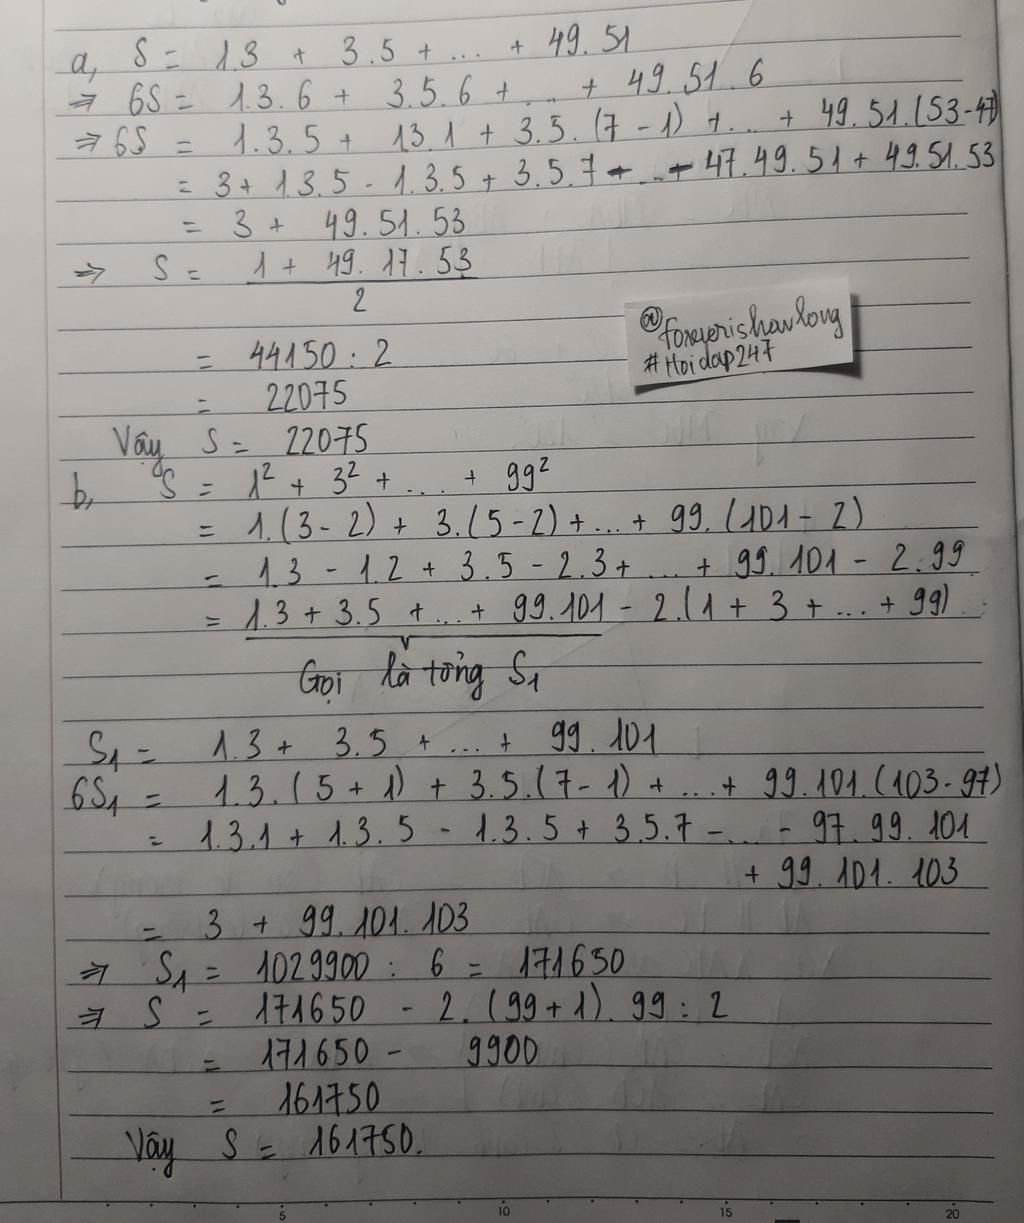 a, S = 1.3 + 3.5 + ... + 49.51
⇒ 6S = 1.3.6 + 3.5.6 + ... + 49.51.6
⇒ 6S = 1.3.5 + 1.3.1 + 3.5.(7-1) + ... + 49.51.(53-47)
= 3 + 1.3.5 - 1.3.5 + 3.5.7 - ... - 47.49.51 + 49.51.53
= 3 + 49.51.53
⇒ S = 1 + 49.17.53
2
@foreverishawlong
#Hoidap247
= 44150 : 2
= 22075
Vậy S = 22075
b, S = 1² + 3² + ... + 99²
= 1.(3-2) + 3.(5-2) + ... + 99.(101-2)
= 1.3 - 1.2 + 3.5 - 2.3 + ... + 99.101 - 2.99
= 1.3 + 3.5 + ... + 99.101 - 2.(1 + 3 + ... + 99)
Gọi là tổng S₁
S₁ = 1.3 + 3.5 + ... + 99.101
6S₁ = 1.3.(5+1) + 3.5.(7-1) + ... + 99.101.(103-97)
= 1.3.1 + 1.3.5 - 1.3.5 + 3.5.7 - ... - 97.99.101
+ 99.101.103
= 3 + 99.101.103
⇒ S₁ = 1029900 : 6 = 171650
⇒ S = 171650 - 2.(99+1).99 : 2
= 171650 - 9900
= 161750
Vậy S = 161750.
5 10 15 20